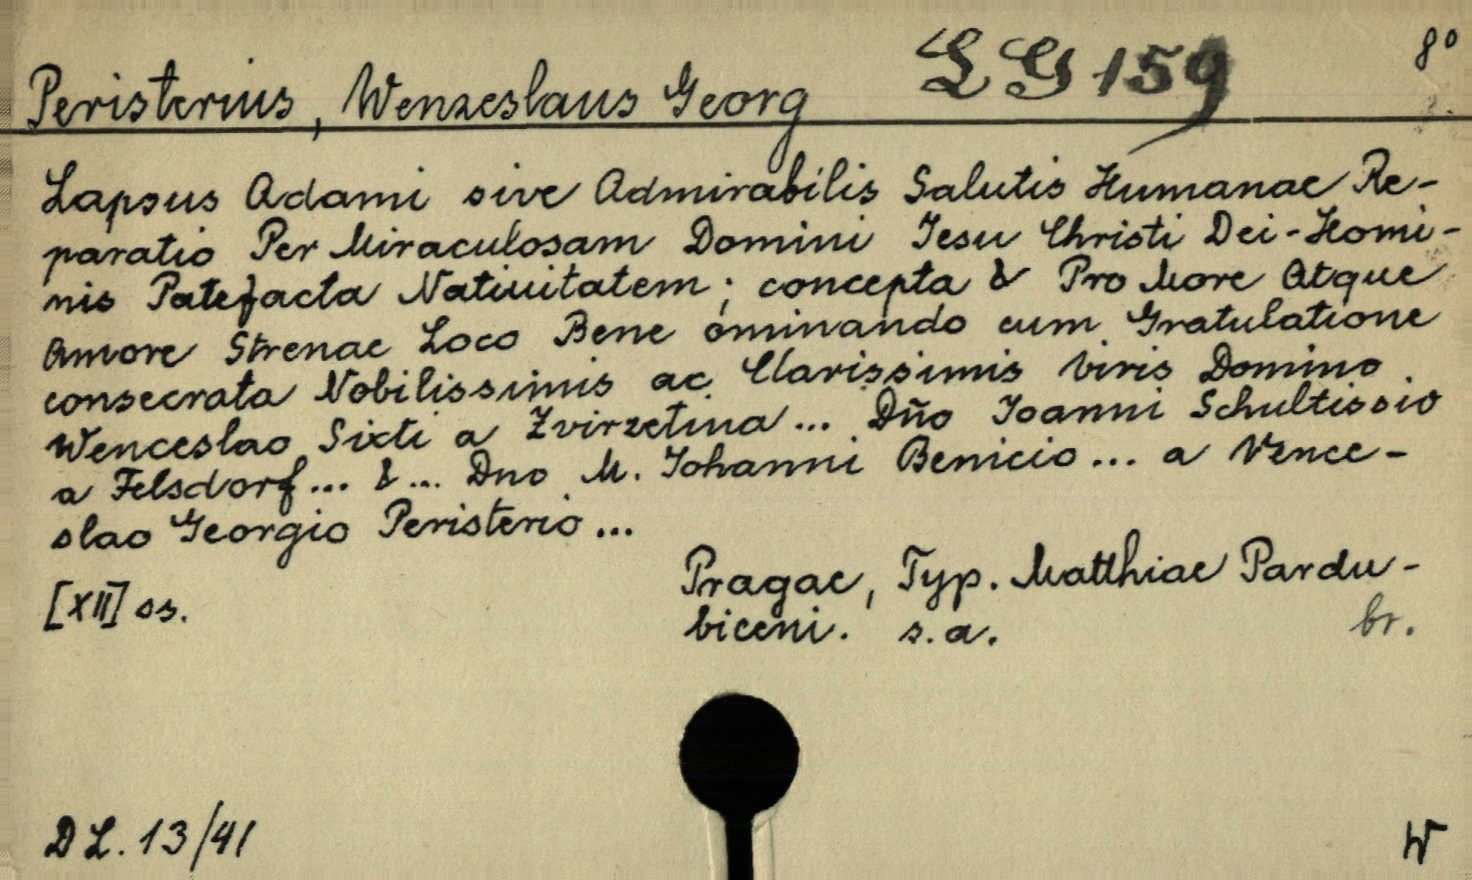 Peristerius, Wenzeslaus Georg LG 159 8°
Lapsus Adami sive Admirabilis Salutis Humanae Re-
paratio Per Miraculosam Domini Iesu Christi Dei-Homi-
nis Patefacta Natiuitatem; concepta & Pro More Atque
Amore Strenae Loco Bene ominando cum Gratulatione
consecrata Nobilissimis ac Clarissimis Viris Domino
Wenceslao Sixti a Zvirzetina... Dño Ioanni Schultissio
a Felsdorf... & ... Dno M. Iohanni Benicio... a Vence-
slao Georgio Peristerio...
Pragae, Typ. Matthiae Pardu-
[XII] ss.
biceni. s. a. br.
DL. 13/41 W